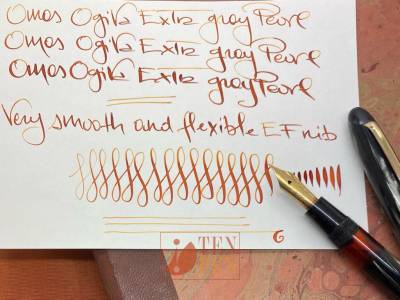 Omas Ogiva Extra gray Pearl
Omas Ogiva Extra gray Pearl
Omas Ogiva Extra gray Pearl
Very smooth and flexible EF nib
TEN